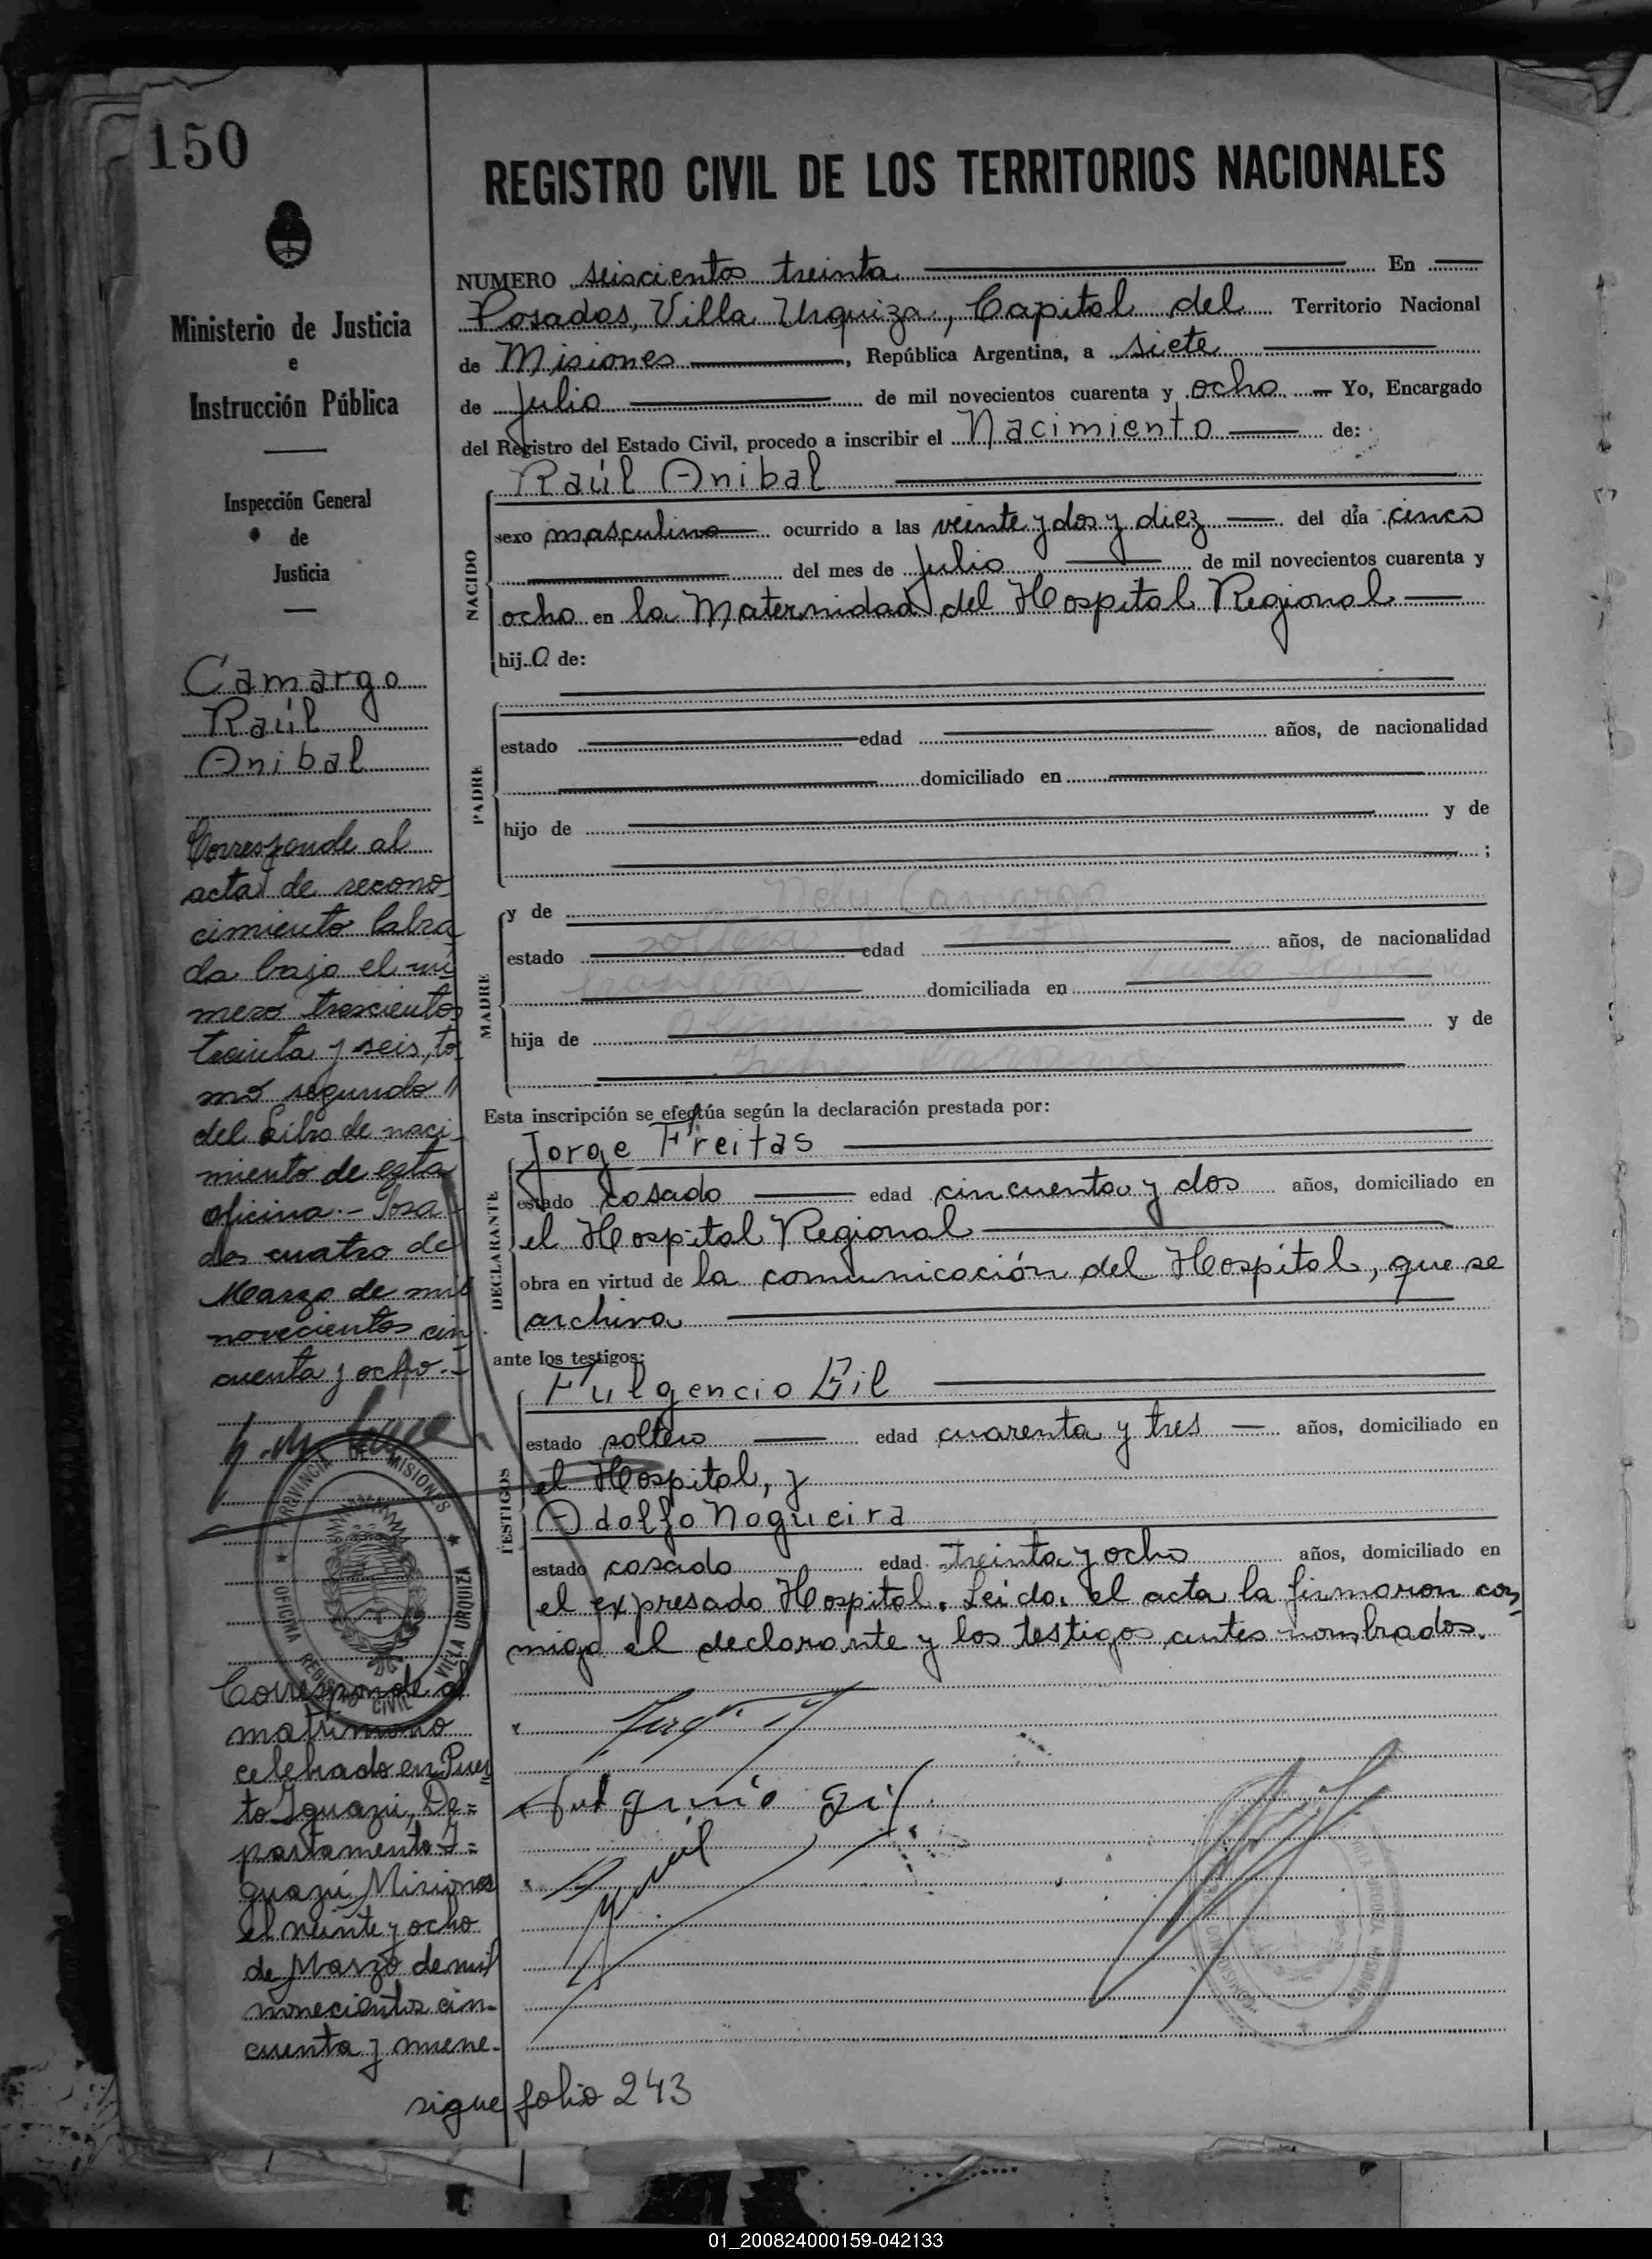 150
Ministerio de Justicia
e
Instrucción Pública
Inspección General
de
Justicia
Camargo
Raúl
Anibal
Corresponde al
acta de recono
cimiento labra
da bajo el nú
mero trescientos
treinta y seis, to
mo segundo //
del Libro de naci-
miento de esta
oficina.- Posa-
das cuatro de
Marzo de mil
novecientos cin
cuenta y ocho.-
PROVINCIA DE MISIONES
OFICINA REGISTRO CIVIL VILLA URQUIZA
Corresponde al
matrimonio
celebrado en Puer
to Iguazú, De=
partamento I=
guazú, Misiones
el veinte y ocho
de Marzo de mil
novecientos cin-
cuenta y nueve-
REGISTRO CIVIL DE LOS TERRITORIOS NACIONALES
NUMERO seiscientos treinta En
Posadas, Villa Urquiza, Capital del Territorio Nacional
de Misiones, República Argentina, a siete
de Julio de mil novecientos cuarenta y ocho Yo, Encargado
del Registro del Estado Civil, procedo a inscribir el Nacimiento de:
NACIDO
Raúl Anibal
sexo masculino ocurrido a las veinte y dos y diez del día cinco
del mes de Julio de mil novecientos cuarenta y
ocho en la Maternidad del Hospital Regional
hijo de:
PADRE
estado edad años, de nacionalidad
domiciliado en
hijo de y de
;
MADRE
y de Nely Camargo
estado soltera edad años, de nacionalidad
domiciliada en
hija de y de
Esta inscripción se efectúa según la declaración prestada por:
DECLARANTE
Jorge Freitas
estado casado edad cincuenta y dos años, domiciliado en
el Hospital Regional
obra en virtud de la comunicación del Hospital, que se
archiva
ante los testigos:
TESTIGOS
Fulgencio Gil
estado soltero edad cuarenta y tres años, domiciliado en
el Hospital, y
Adolfo Nogueira
estado casado edad treinta y ocho años, domiciliado en
el expresado Hospital. Leida el acta la firmaron con
migo el declarante y los testigos antes nombrados.
sigue folio 243
01_200824000159-042133